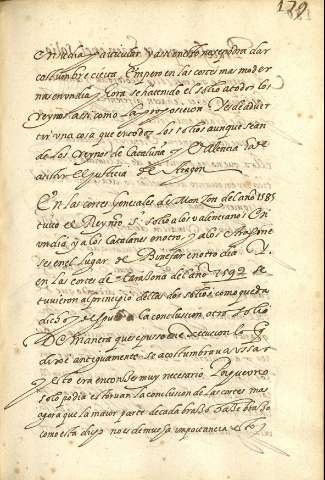 129
en un dia particular y assi en esto no se podra dar
costumbre cierta. Empero en las cortes mas moder
nas en un dia y hora se ha tenido el solio a todos los
reynos assi como la proposicion. Es de adver
tir una cosa que en todos los solios aunque sean
de los reynos de Cataluña y Valencia ha de
assistir el justicia de Aragon
En las cortes Generales de Monzon del año 1585
tuvo el Rey nro sr solio a los valencianos en
un dia y a los Catalanes en otro, y a los Aragone
ses en el lugar de Binefar en otro dia Y.
en las cortes de taraçona del año 1592 se
tuvieron al principio dellas dos solios como queda
dicho y despues a la conclusion otro solio
De manera que se puso en execucion lo q
desde antiguamente se acostumbrava a usar
y esto era entonces muy necesario Porque uno
solo podia estorvar la conclusion de las cortes mas
agora que la mayor parte de cada braço haze braço
como esta dicho no es de mucha importancia el to